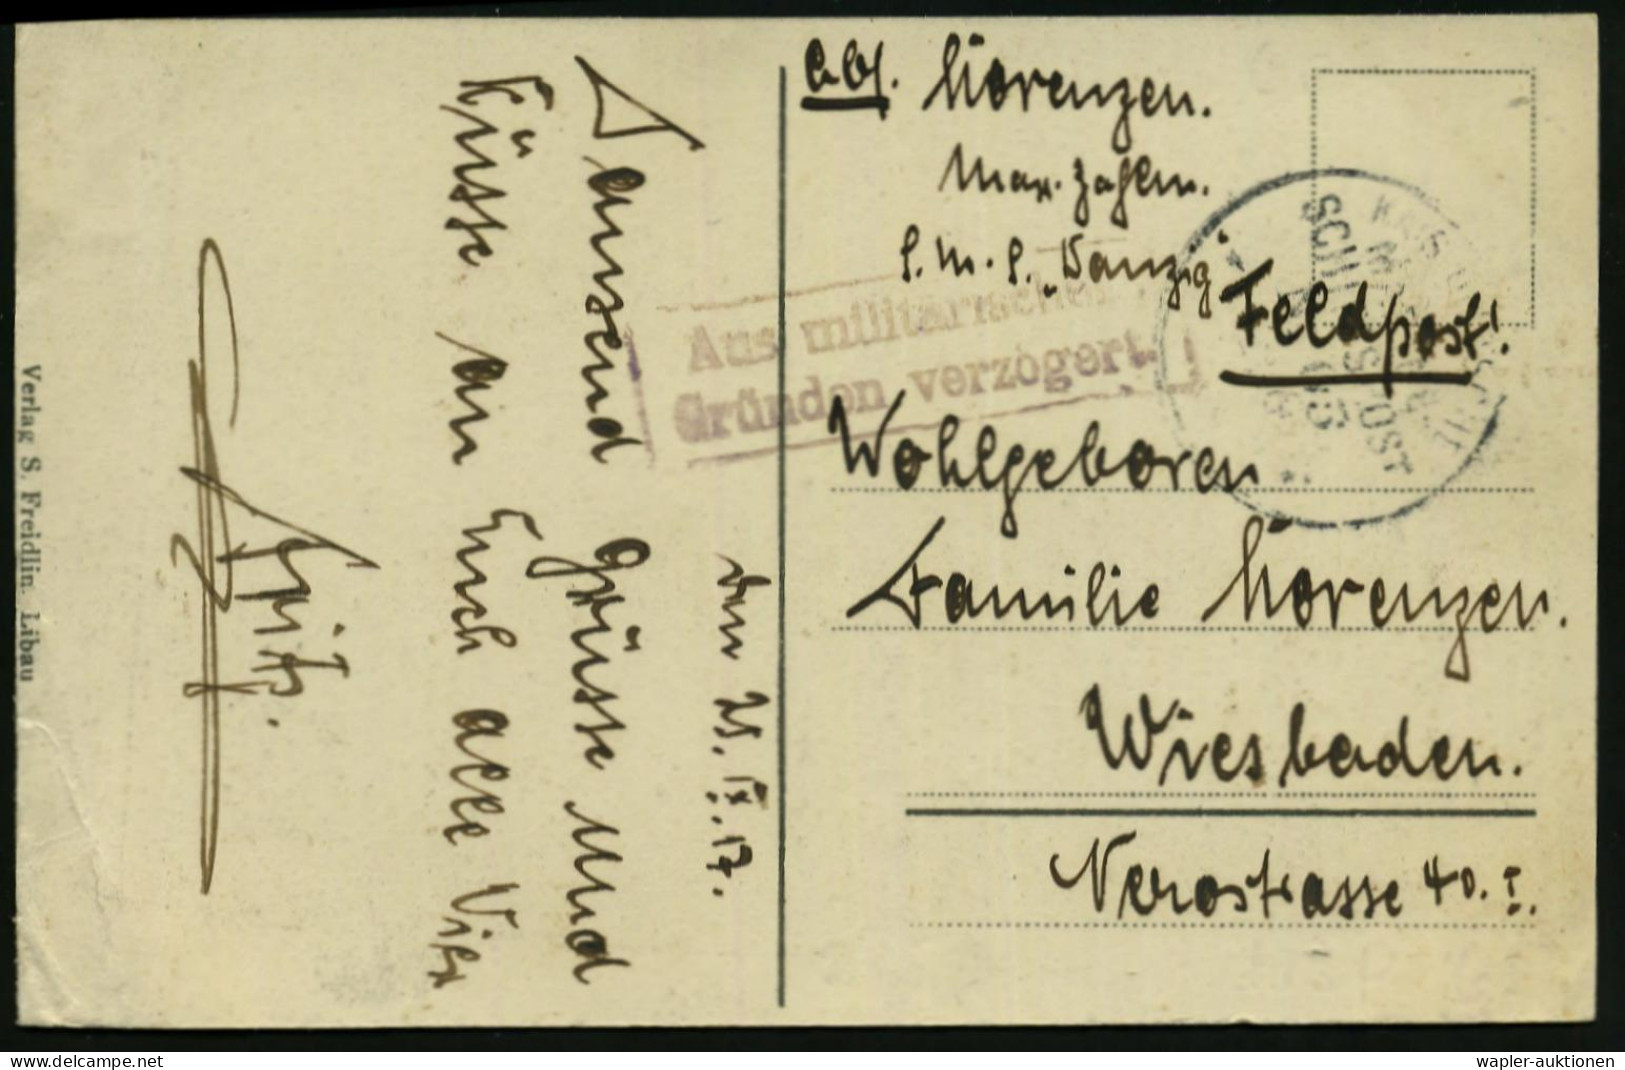 den 25. IX. 17.
Tausend Grüsse und
Küsse an Euch alle Vier
Fritz.
Verlag S. Freidlin. Libau
Abs. Lorenzen.
Mar. Zahlm.
S. M. S. „Danzig“
Feldpost!
Aus militärischen
Gründen verzögert.
Wohlgeboren
Familie Lorenzen.
Wiesbaden.
Nerostrasse 40. I.
wapler-auktionen
www.delcampe.net